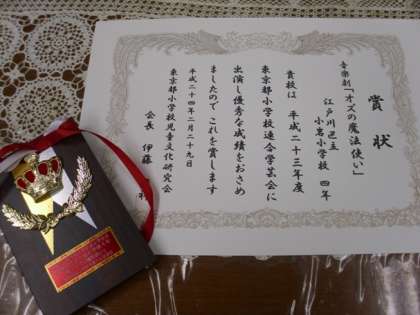 賞状
音楽劇「オズの魔法使い」
江戸川区立
小岩小学校 四年
貴校は 平成二十三年度
東京都小学校連合学芸会に
出演し優秀な成績をおさめ
ましたので これを賞します
平成二十四年二月二十九日
東京都小学校児童文化研究会
会長 伊藤